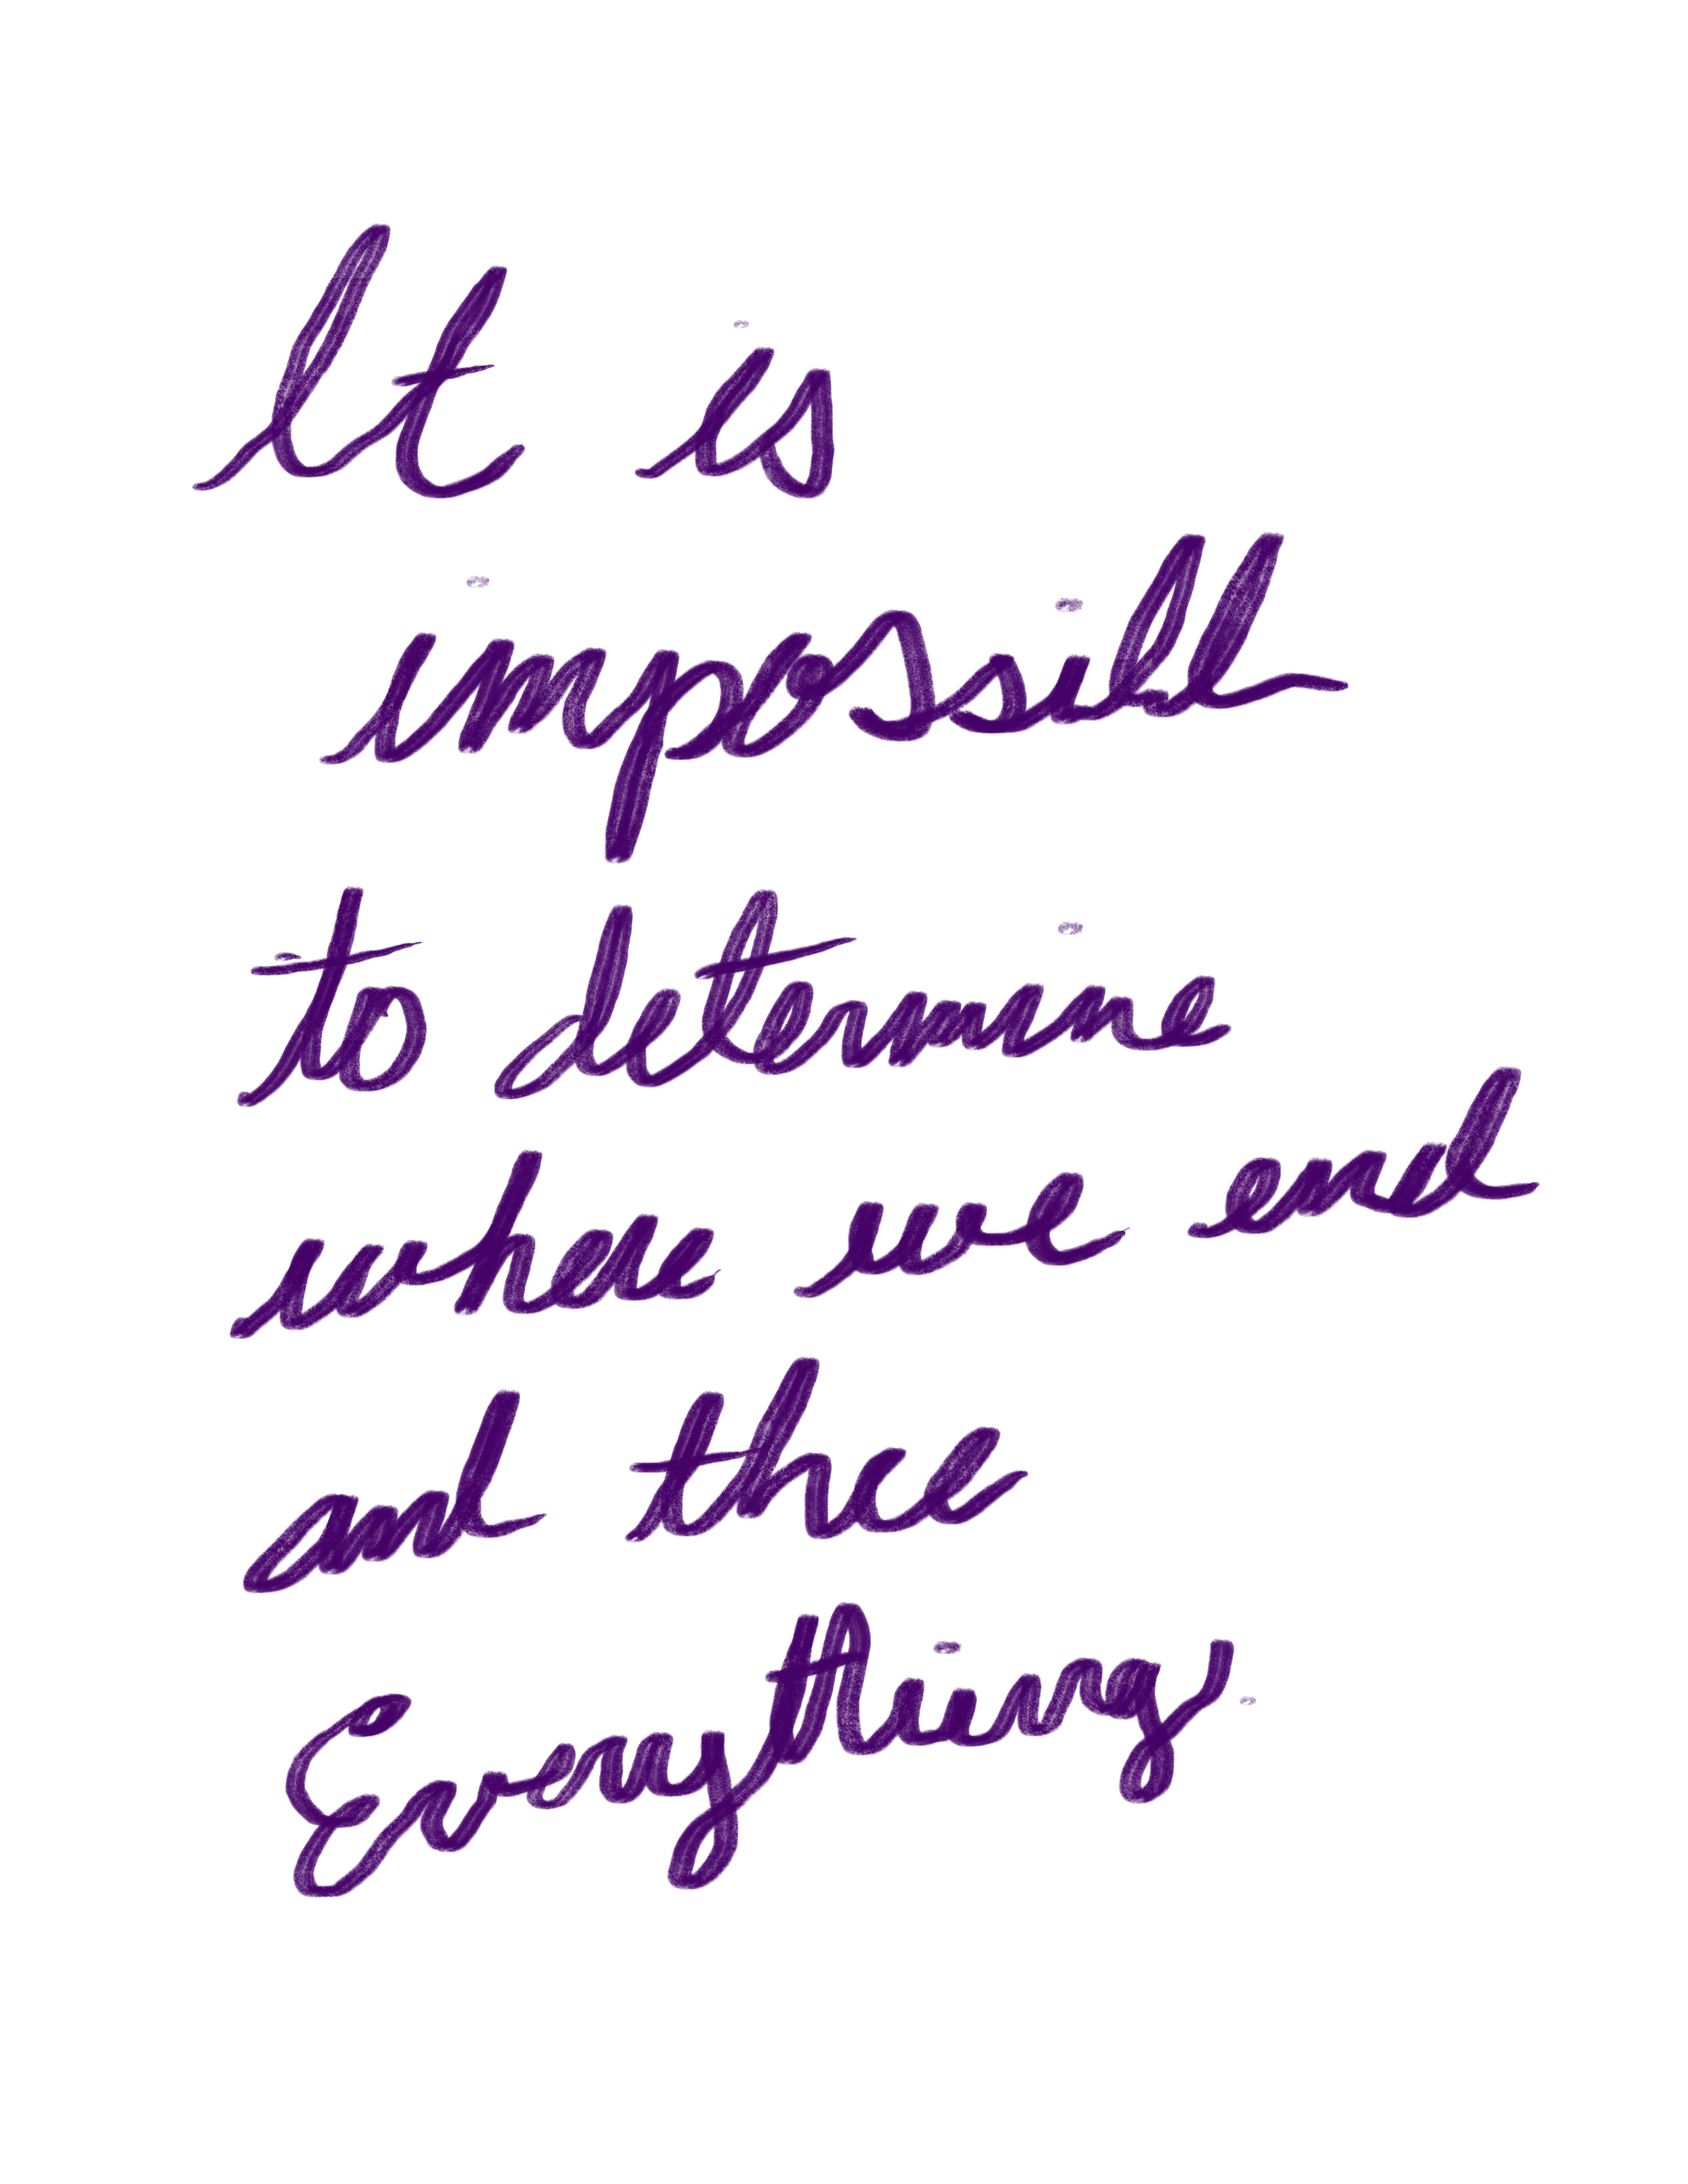 It is
impossible
to determine
where we end
and thee
Everything.